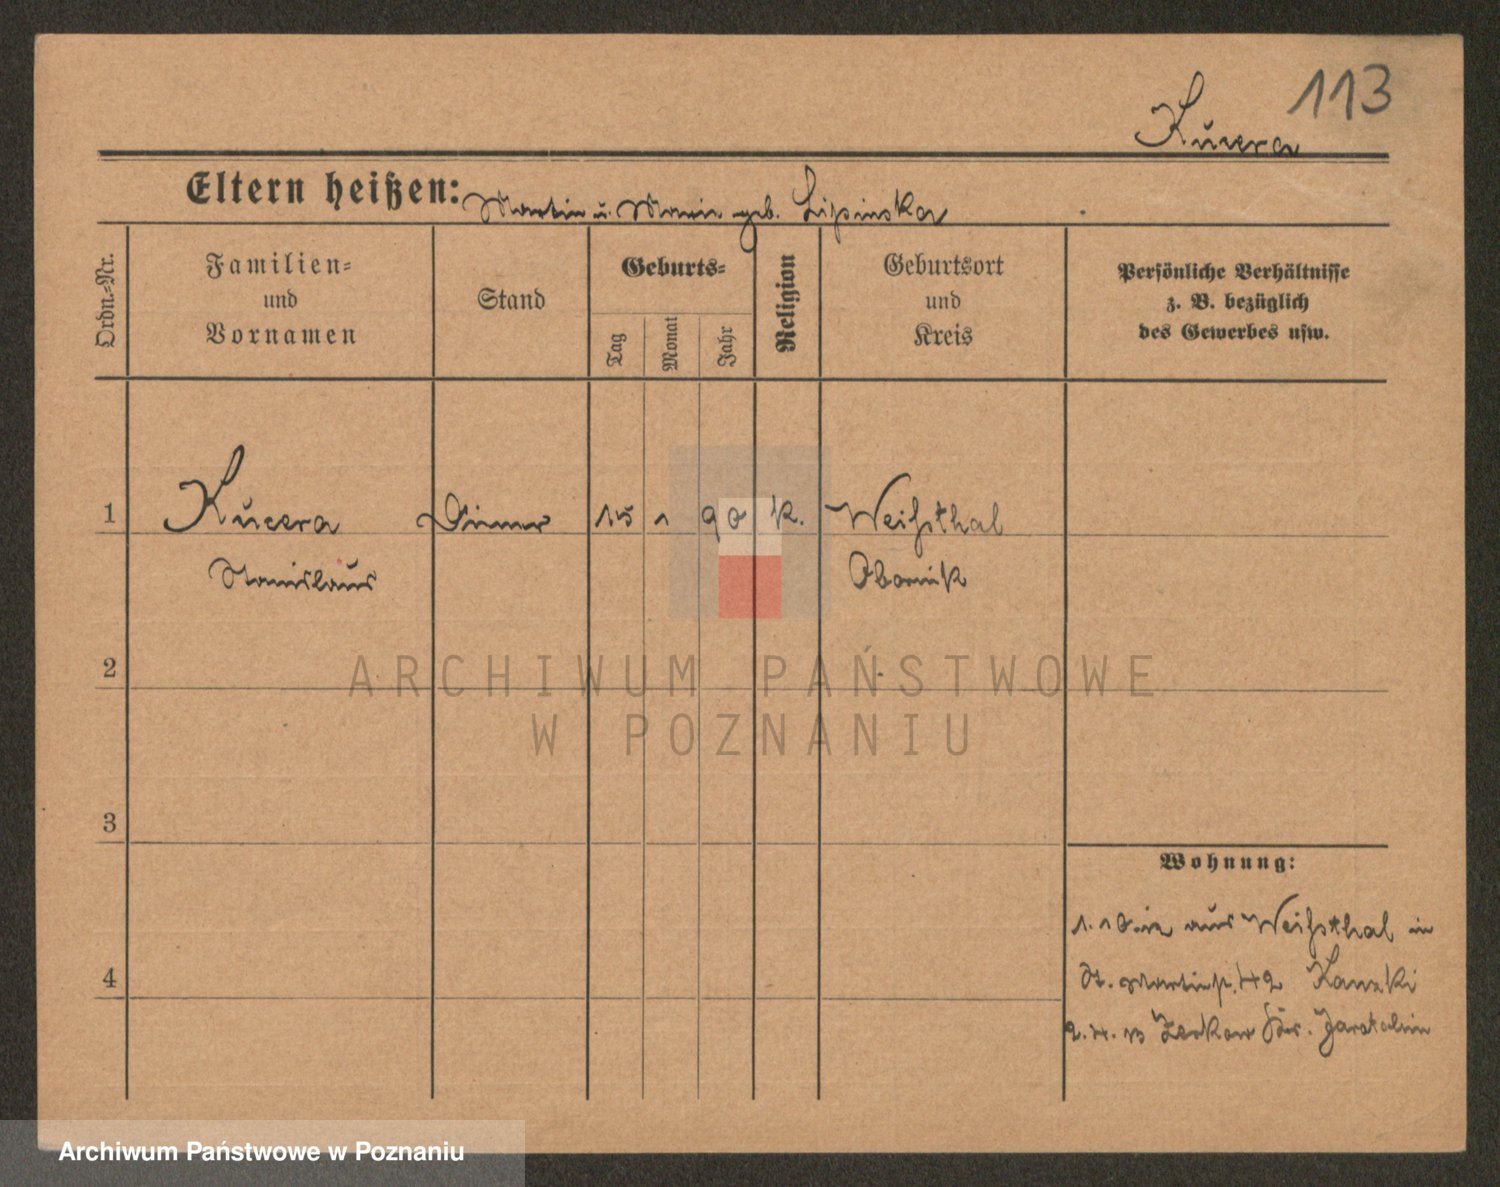 113
Kucera
Eltern heißen: Martin u. Marie geb. Lipinska
Ordn.-Nr.
Familien-
und
Vornamen
Stand
Geburts-
Tag
Monat
Jahr
Religion
Geburtsort
und
Kreis
Persönliche Verhältnisse
z. B. bezüglich
des Gewerbes usw.
1 Kucera Diener 15 1 90 k. Weißthal
Stanislaus Obornik
2
3
4
Wohnung:
aus Weißthal in
St. Martinstr. 42
Zerkow Kr. Jarotschin
ARCHIWUM PAŃSTWOWE
W POZNANIU
Archiwum Państwowe w Poznaniu